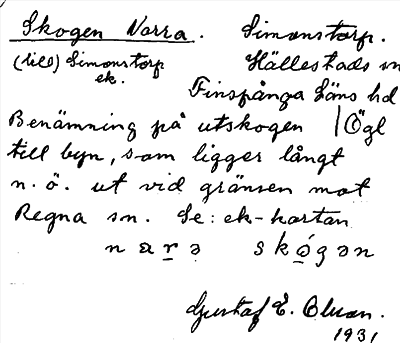 Skogen Norra. Simonstorp.
(till) Simonstorp Hällestads sn
ek. Finspånga Läns hd
Benämning på utskogen | Ögl
till byn, som ligger långt
n. ö. ut vid gränsen mot
Regna sn. Se: ek-kartan
narə skógən
Gustaf E.
1931